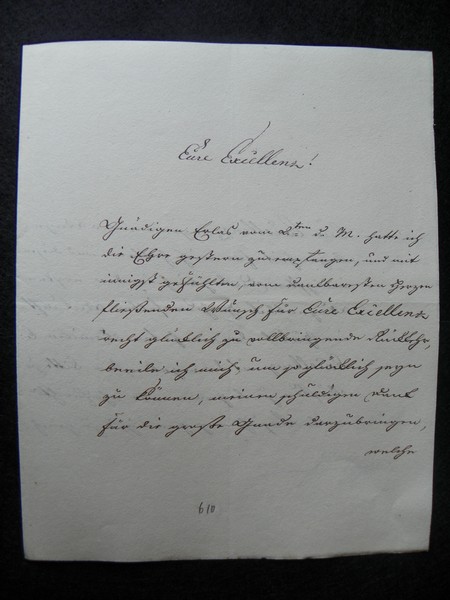 Eure Excellenz!
Gnädigen Erlas vom 2ten d. M. hatte ich
die Ehre gestern zu empfangen, und mit
innigst gefühlten, vom dankbarsten Herzen
fließenden Wunsch für Eure Excellenz
recht glücklich zu vollbringende Rückkehr,
beeile ich mich, um so glücklich seyn
zu können, meinen schuldigen Dank
für die große Gnade darzubringen,
welche
610